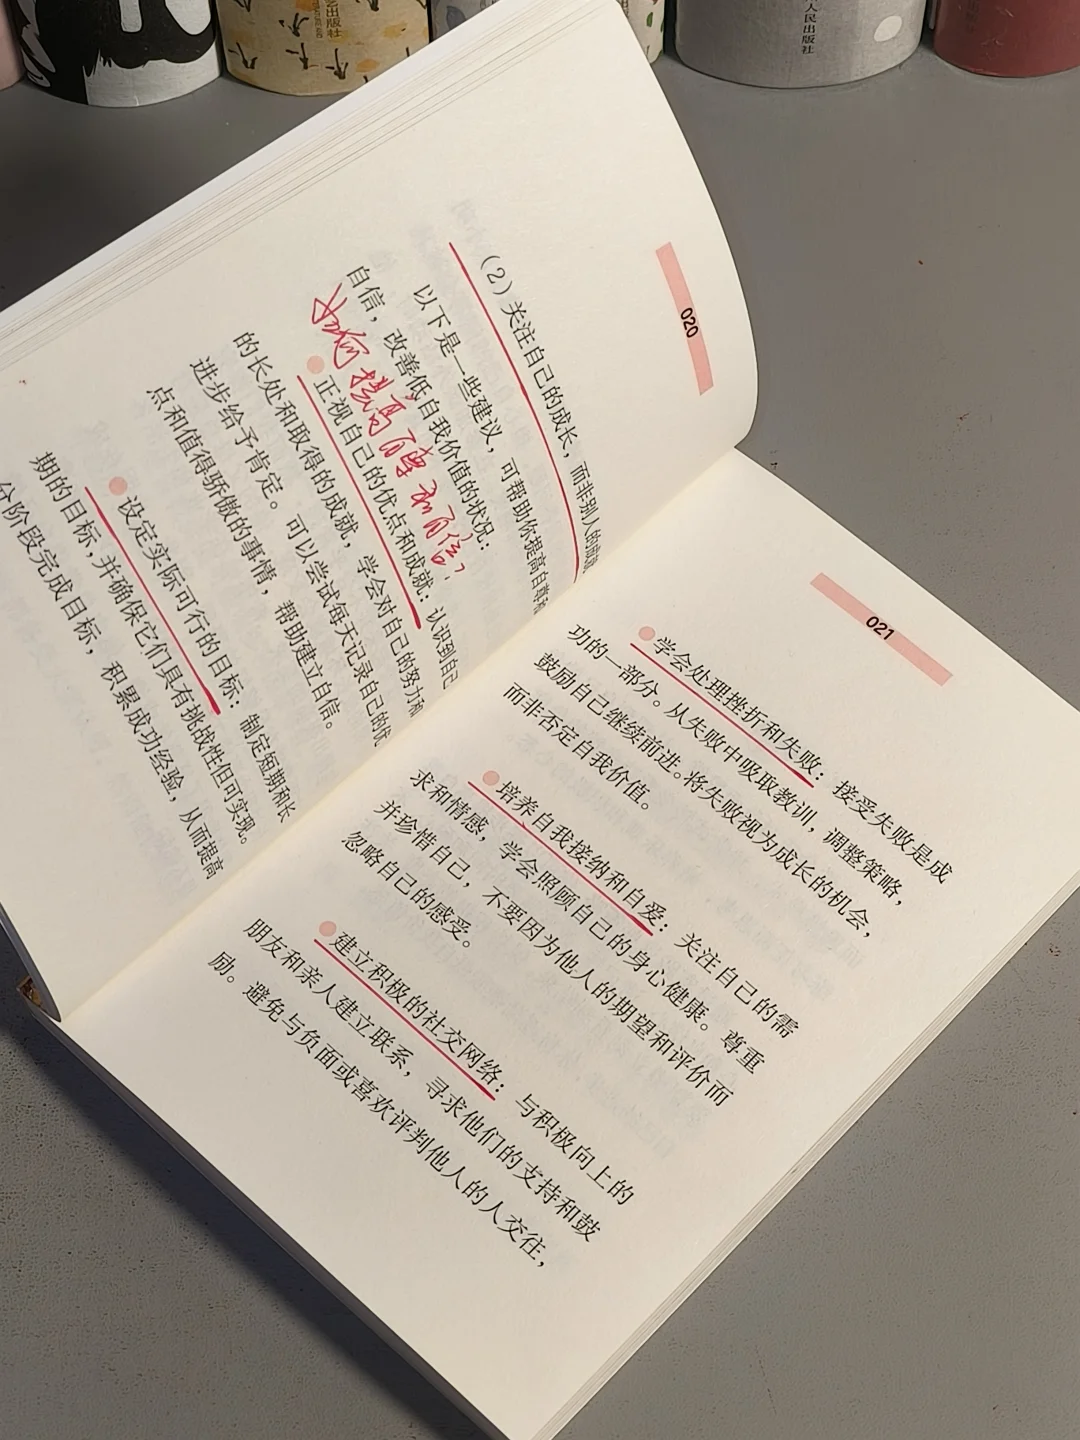 020
(2)关注自己的成长，而非别人的
以下是一些建议，可帮助你提高自尊和
自信，改善低自我价值的状况：
如何提高自尊和自信？
正视自己的优点和成就：认识到自己
的长处和取得的成就，学会对自己的努力和
进步给予肯定。可以尝试每天记录自己的优
点和值得骄傲的事情，帮助建立自信。
设定实际可行的目标：制定短期和长
期的目标，并确保它们具有挑战性但可实现。
分阶段完成目标，积累成功经验，从而提高
021
学会处理挫折和失败：接受失败是成
功的一部分。从失败中吸取教训，调整策略，
鼓励自己继续前进。将失败视为成长的机会，
而非否定自我价值。
培养自我接纳和自爱：关注自己的需
求和情感，学会照顾自己的身心健康。尊重
并珍惜自己，不要因为他人的期望和评价而
忽略自己的感受。
建立积极的社交网络：与积极向上的
朋友和亲人建立联系，寻求他们的支持和鼓
励。避免与负面或喜欢评判他人的人交往，
出版社
人民出版社